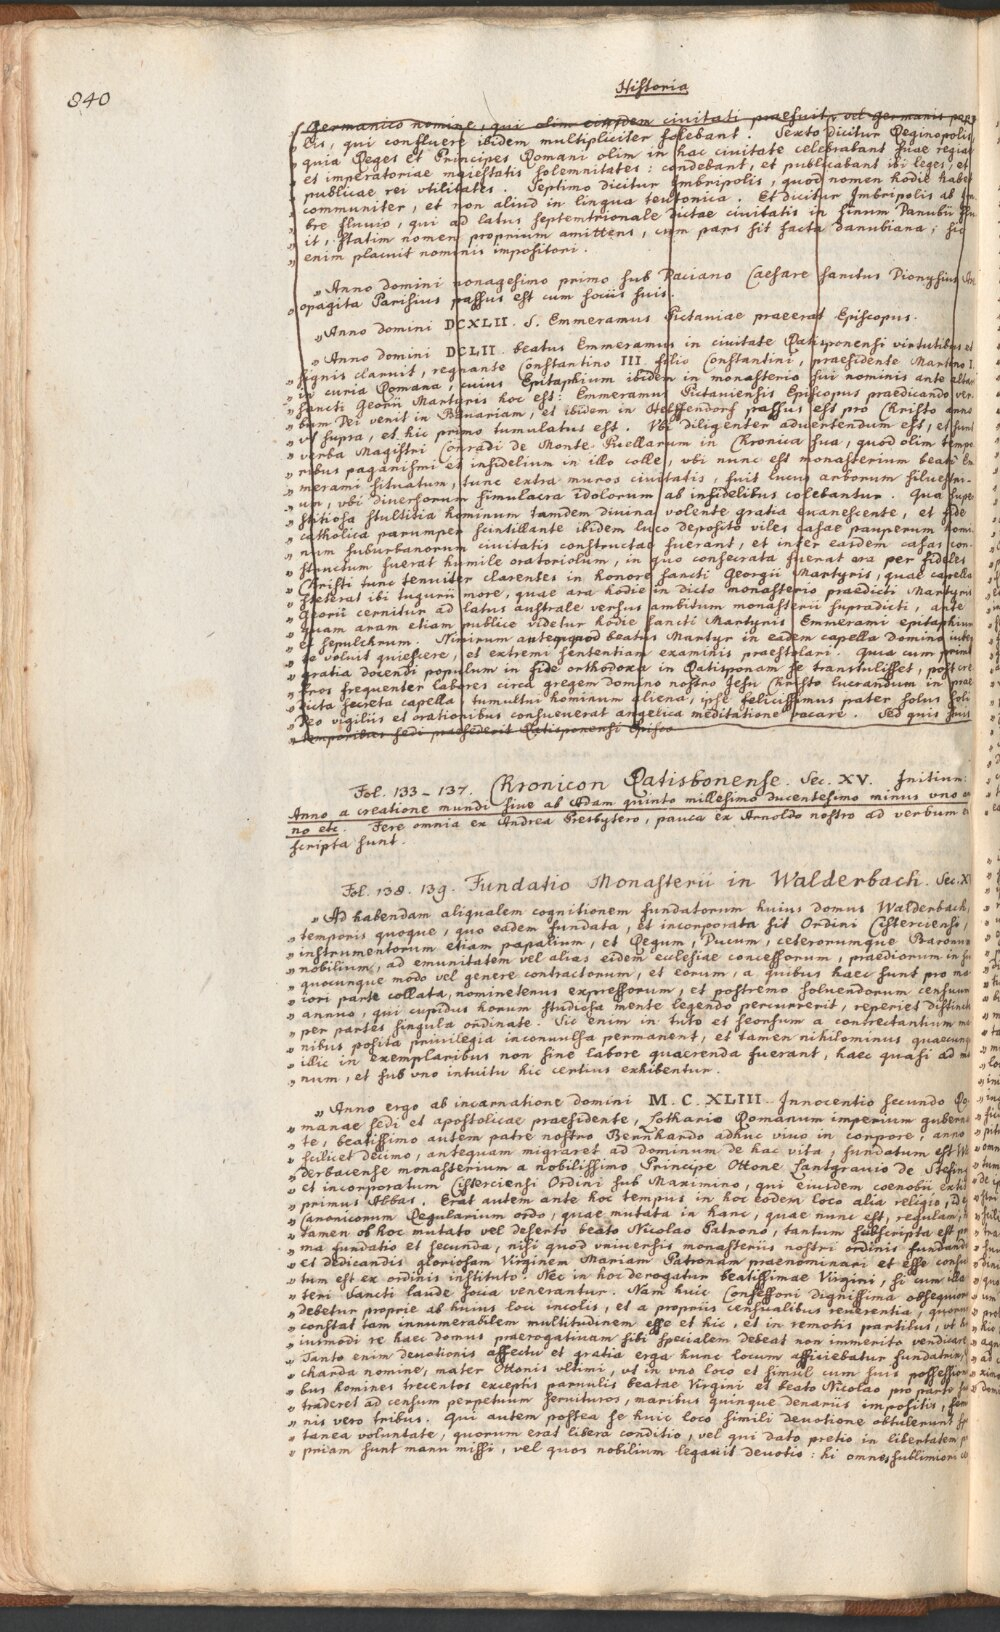 840
Historia
Germanico nomine, qui olim eidem civitati praefuit, vel germanis popu
„ lis, qui confluere ibidem multipliciter solebant. Sexto dicitur Reginopolis,
„ quia Reges et Principes Romani olim in hac civitate celebrabant suae regiae
„ et imperatoriae maiestatis solemnitates: condebant, et publicabant ibi leges, et
„ publicae rei vtilitates. Septimo dicitur Imbripolis, quod nomen hodie habet
„ communiter, et non aliud in lingua teutonica. Et dicitur Imbripolis ab Im
„ bre fluuio, qui ad latus septemtrionale dictae ciuitatis in sinum Danubii flu
„ it, statim nomen proprium amittens, cum pars sit facta danubiana; sic
„ enim placuit nominis impositori.
„ Anno domini nonagesimo primo sub Daciano Caesare sanctus Dionysius
opagita Parisius passus est cum sociis suis.
„ Anno domini DCXLII. S. Emmeramus Pictaniae praeerat Episcopus.
„ Anno domini DCLII. beatus Emmeramus in ciuitate Ratisponensi virtutibus et
„ signis claruit, regnante Constantino III. filio Constantini, praesidente Martino I.
„ in curia Romana, cuius Epitaphium ibidem in monasterio sui nominis ante altare
„ sancti Georii Martyris hoc est: Emmeramus Pictaniensis Episcopus praedicando ver
„ bum Dei venit in Bauariam, et ibidem in Helffendorf passus est pro Christo anno
„ vt supra, et hic primo tumulatus est. Vbi diligenter aduertendum est, et sunt
„ verba Magistri Conradi de Monte Puellarum in Cronica sua, quod olim tempo
„ ribus paganismi et infidelium in illo colle, vbi nunc est monasterium beati Em
„ merami situatum, tunc extra muros ciuitatis, fuit lucus arborum siluestri-
„ um, vbi diuersorum simulacra idolorum ab infidelibus colebantur. Qua supe
„ stitiosa stultitia hominum tamdem diuina volente gratia euanescente, et fide
„ catholica parumper scintillante ibidem luco deposito viles casae pauperum homi
„ num suburbanorum ciuitatis constructae fuerant, et infer easdem casas con-
„ structum fuerat humile oratoriolum, in quo consecrata fuerat ara per fideles
„ Christi tunc tenuiter clarentes in honore sancti Georgii Martyris, quae capella
„ steterat ibi tugurii more, quae ara hodie in dicto monasterio praedicti Martyris
„ Georii cernitur ad latus australe versus ambitum monasterii supradicti, ante
„ quam aram etiam publice videtur hodie sancti Martyris Emmerami epitaphium
„ et sepulchrum. Nimirum antequod beatus Martyr in eadem capella Domino iube
„ te voluit quiescere, et extremi sententiam examinis praestolari. Quia cum primi
„ gratia docendi populum in fide orthodoxa in Ratisponam se transtulisset, post cre
„ bros frequenter labores circa gregem domino nostro Jesu Christo lucrandum in prae
„ dicta secreta capella, tumultui hominum aliena, ipse felicissimus pater solus soli
„ Deo vigiliis et orationibus consueuerat angelica meditatione vacare. Sed quis suis
„ temporibus sedi praesederit Ratisponensi Episco
Fol. 133–137. Chronicon Ratisbonense. Sec. XV. Initium:
Anno a creatione mundi siue ab Adam quinto millesimo ducentesimo minus vno an
no etc. Fere omnia ex Andrea Presbytero, pauca ex Arnoldo nostro ad verbum ex
scripta sunt.
Fol. 138. 139. Fundatio Monasterii in Walderbach. Sec. X
„ Ad habendam aliqualem cognitionem fundatorum huius domus Walderbach,
„ temporis quoque, quo eadem fundata, et incorporata sit Ordini Cisterciensi,
„ instrumentorum etiam papalium, et Regum, Ducum, ceterorumque Baronum
„ nobilium, ad emunitatem vel alias eidem ecclesiae concessorum, praediorum in su
„ quocunque modo vel genere contractorum, et eorum, a quibus haec sunt pro ma
„ iori parte collata, nominetenus expressorum, et postremo soluendorum censuum
„ annuo, qui cupidus horum studiosa mente legendo percurrerit, reperiet distincte
„ per partes singula ordinate. Sic enim in tuto et seorsum a contrectantium ma
„ nibus posita priuilegia inconuulsa permanent, et tamen nihilominus quaecunque
„ illic in exemplaribus non sine labore quaerenda fuerant, haec quasi ad ma
„ num, et sub vno intuitu hic certius exhibentur.
„ Anno ergo ab incarnatione domini M. C. XLIII. Innocentio secundo Ro
„ manae sedi et apostolicae praesidente, Lothario Romanum imperium guberna
„ te, beatissimo autem patre nostro Bernhardo adhuc viuo in corpore, anno
„ scilicet decimo, antequam migraret ad dominum de hac vita, fundatum est Wal
„ derbacense monasterium a nobilissimo Principe Ottone Lantgrauio de Stefni
„ et incorporatum Cisterciensi Ordini sub Maximino, qui eiusdem coenobii extit
„ primus Abbas. Erat autem ante hoc tempus in hoc eodem loco alia religio,
„ Canonicorum Regularium ordo, quae mutata in hanc, quae nunc est, regulam,
„ tamen ob hoc mutato vel deserto beato Nicolao Patrono, tantum subscripta est pri
„ ma fundatio et secunda, nisi quod vniuersis monasteriis nostri ordinis fundandis
„ et dedicandis gloriosam Virginem Mariam Patronam praenominari et esse consu
„ tum est ex ordinis instituto. Nec in hoc derogatur beatissimae Virgini, si cum illa
„ teri Sancti laude socia venerantur. Nam huic Confessori dignissima obsequiorum
„ debetur proprie ab huius loci incolis, et a propriis censualibus reuerentia, quorum
„ constat tam innumerabilem multitudinem esse et hic, et in remotis partibus, vt hu
„ iusmodi re haec domus praerogatiuam sibi specialem debeat non immerito vendicare.
„ Tanto enim deuotionis affectu et gratia erga hunc locum afficiebatur fundatrix,
„ charda nomine, mater Ottonis vltimi, vt in vno loco et simul cum suis possessioni
„ bus homines trecentos exceptis paruulis beatae Virgini et beato Nicolao pro parte
„ traderet ad censum perpetuum seruituros, maribus quinque denariis impositis, femi
„ nis vero tribus. Qui autem postea se huic loco simili deuotione obtulerunt spon
„ tanea voluntate, quorum erat libera conditio, vel qui dato pretio in libertatem pro
„ priam sunt manu missi, vel quos nobilium legauit deuotio: hi omnes sublimiori